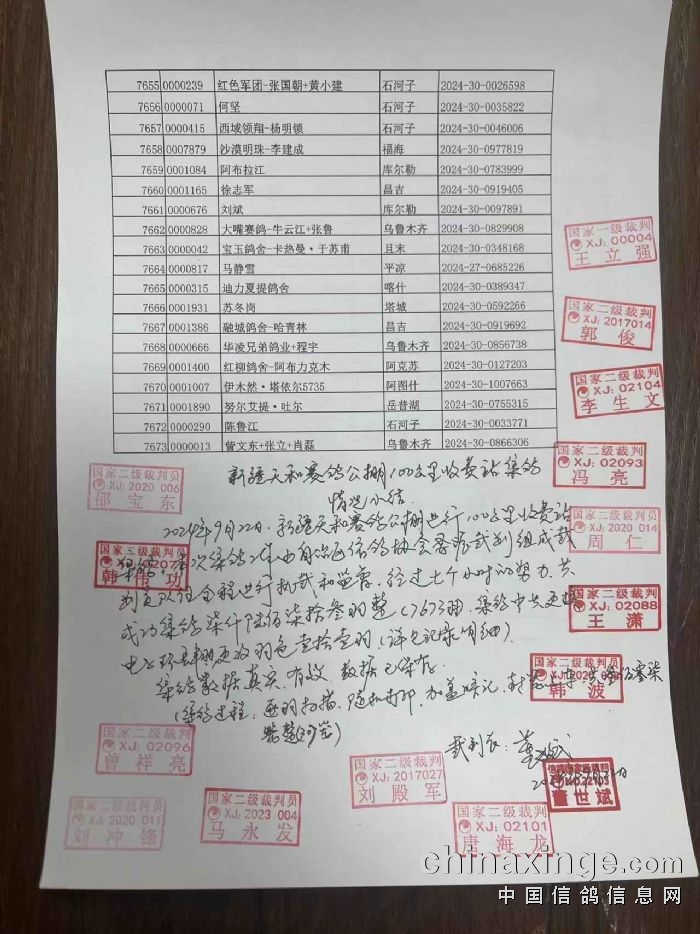 7655 0000239 红色军团-张国朝+黄小建 石河子 2024-30-0026598
7656 0000071 何坚 石河子 2024-30-0035822
7657 0000415 西域领翔-杨明锁 石河子 2024-30-0046006
7658 0007879 沙漠明珠-李建成 福海 2024-30-0977819
7659 0001084 阿布拉江 库尔勒 2024-30-0783999
7660 0001165 徐志军 昌吉 2024-30-0919405
7661 0000676 刘斌 库尔勒 2024-30-0097891
7662 0000828 大嘴赛鸽-牛云江+张鲁 乌鲁木齐 2024-30-0829908
7663 0000042 宝玉鸽舍-卡热曼·于苏甫 且末 2024-30-0348168
7664 0000817 马静雪 平凉 2024-27-0685226
7665 0000315 迪力夏提鸽舍 喀什 2024-30-0389347
7666 0001931 苏冬岗 塔城 2024-30-0592266
7667 0001386 融城鸽舍-哈青林 昌吉 2024-30-0919692
7668 0000666 华凌兄弟鸽业+程宇 乌鲁木齐 2024-30-0856738
7669 0001400 红柳鸽舍-阿布力克木 阿克苏 2024-30-0127203
7670 0001007 伊木然·塔依尔5735 阿图什 2024-30-1007663
7671 0001890 努尔艾提·吐尔 岳普湖 2024-30-0755315
7672 0000290 陈鲁江 石河子 2024-30-0033771
7673 0000013 訾文东+张立+肖磊 乌鲁木齐 2024-30-0866306
国家一级裁判
XJ: 00004
王立强
国家二级裁判
XJ: 2017014
郭俊
国家二级裁判
XJ: 02104
李生文
国家二级裁判
XJ: 02093
冯亮
国家二级裁判员
XJ: 2020 014
周仁
国家二级裁判
XJ: 02088
王潇
国家二级裁判
韩波
国家二级裁判员
XJ: 2020 006
邵宝东
韩伟功
新疆天和赛鸽公棚100公里收费站集鸽
情况小结
2024年9月22日，新疆天和赛鸽公棚进行100公里收费站
集鸽，本次集鸽工作由自治区信鸽协会委派裁判组成裁
判员队伍全程进行执裁和监督，经过七个小时的努力，共
成功集鸽柒仟陆佰柒拾叁羽整（7673羽），集鸽中共更换
电子环
集鸽数据真实，有效，数据已保存。
（集鸽过程：逐羽扫描，随机打印，加盖暗记，
裁判长：
国家二级裁判
XJ: 02096
曾祥亮
国家二级裁判员
XJ: 2020 011
刘冲锋
国家二级裁判员
XJ: 2023 004
马永发
国家二级裁判
XJ: 2017027
刘殿军
国家二级裁判
XJ: 02101
唐海龙
董世斌
chinaxinge.com
中国信鸽信息网